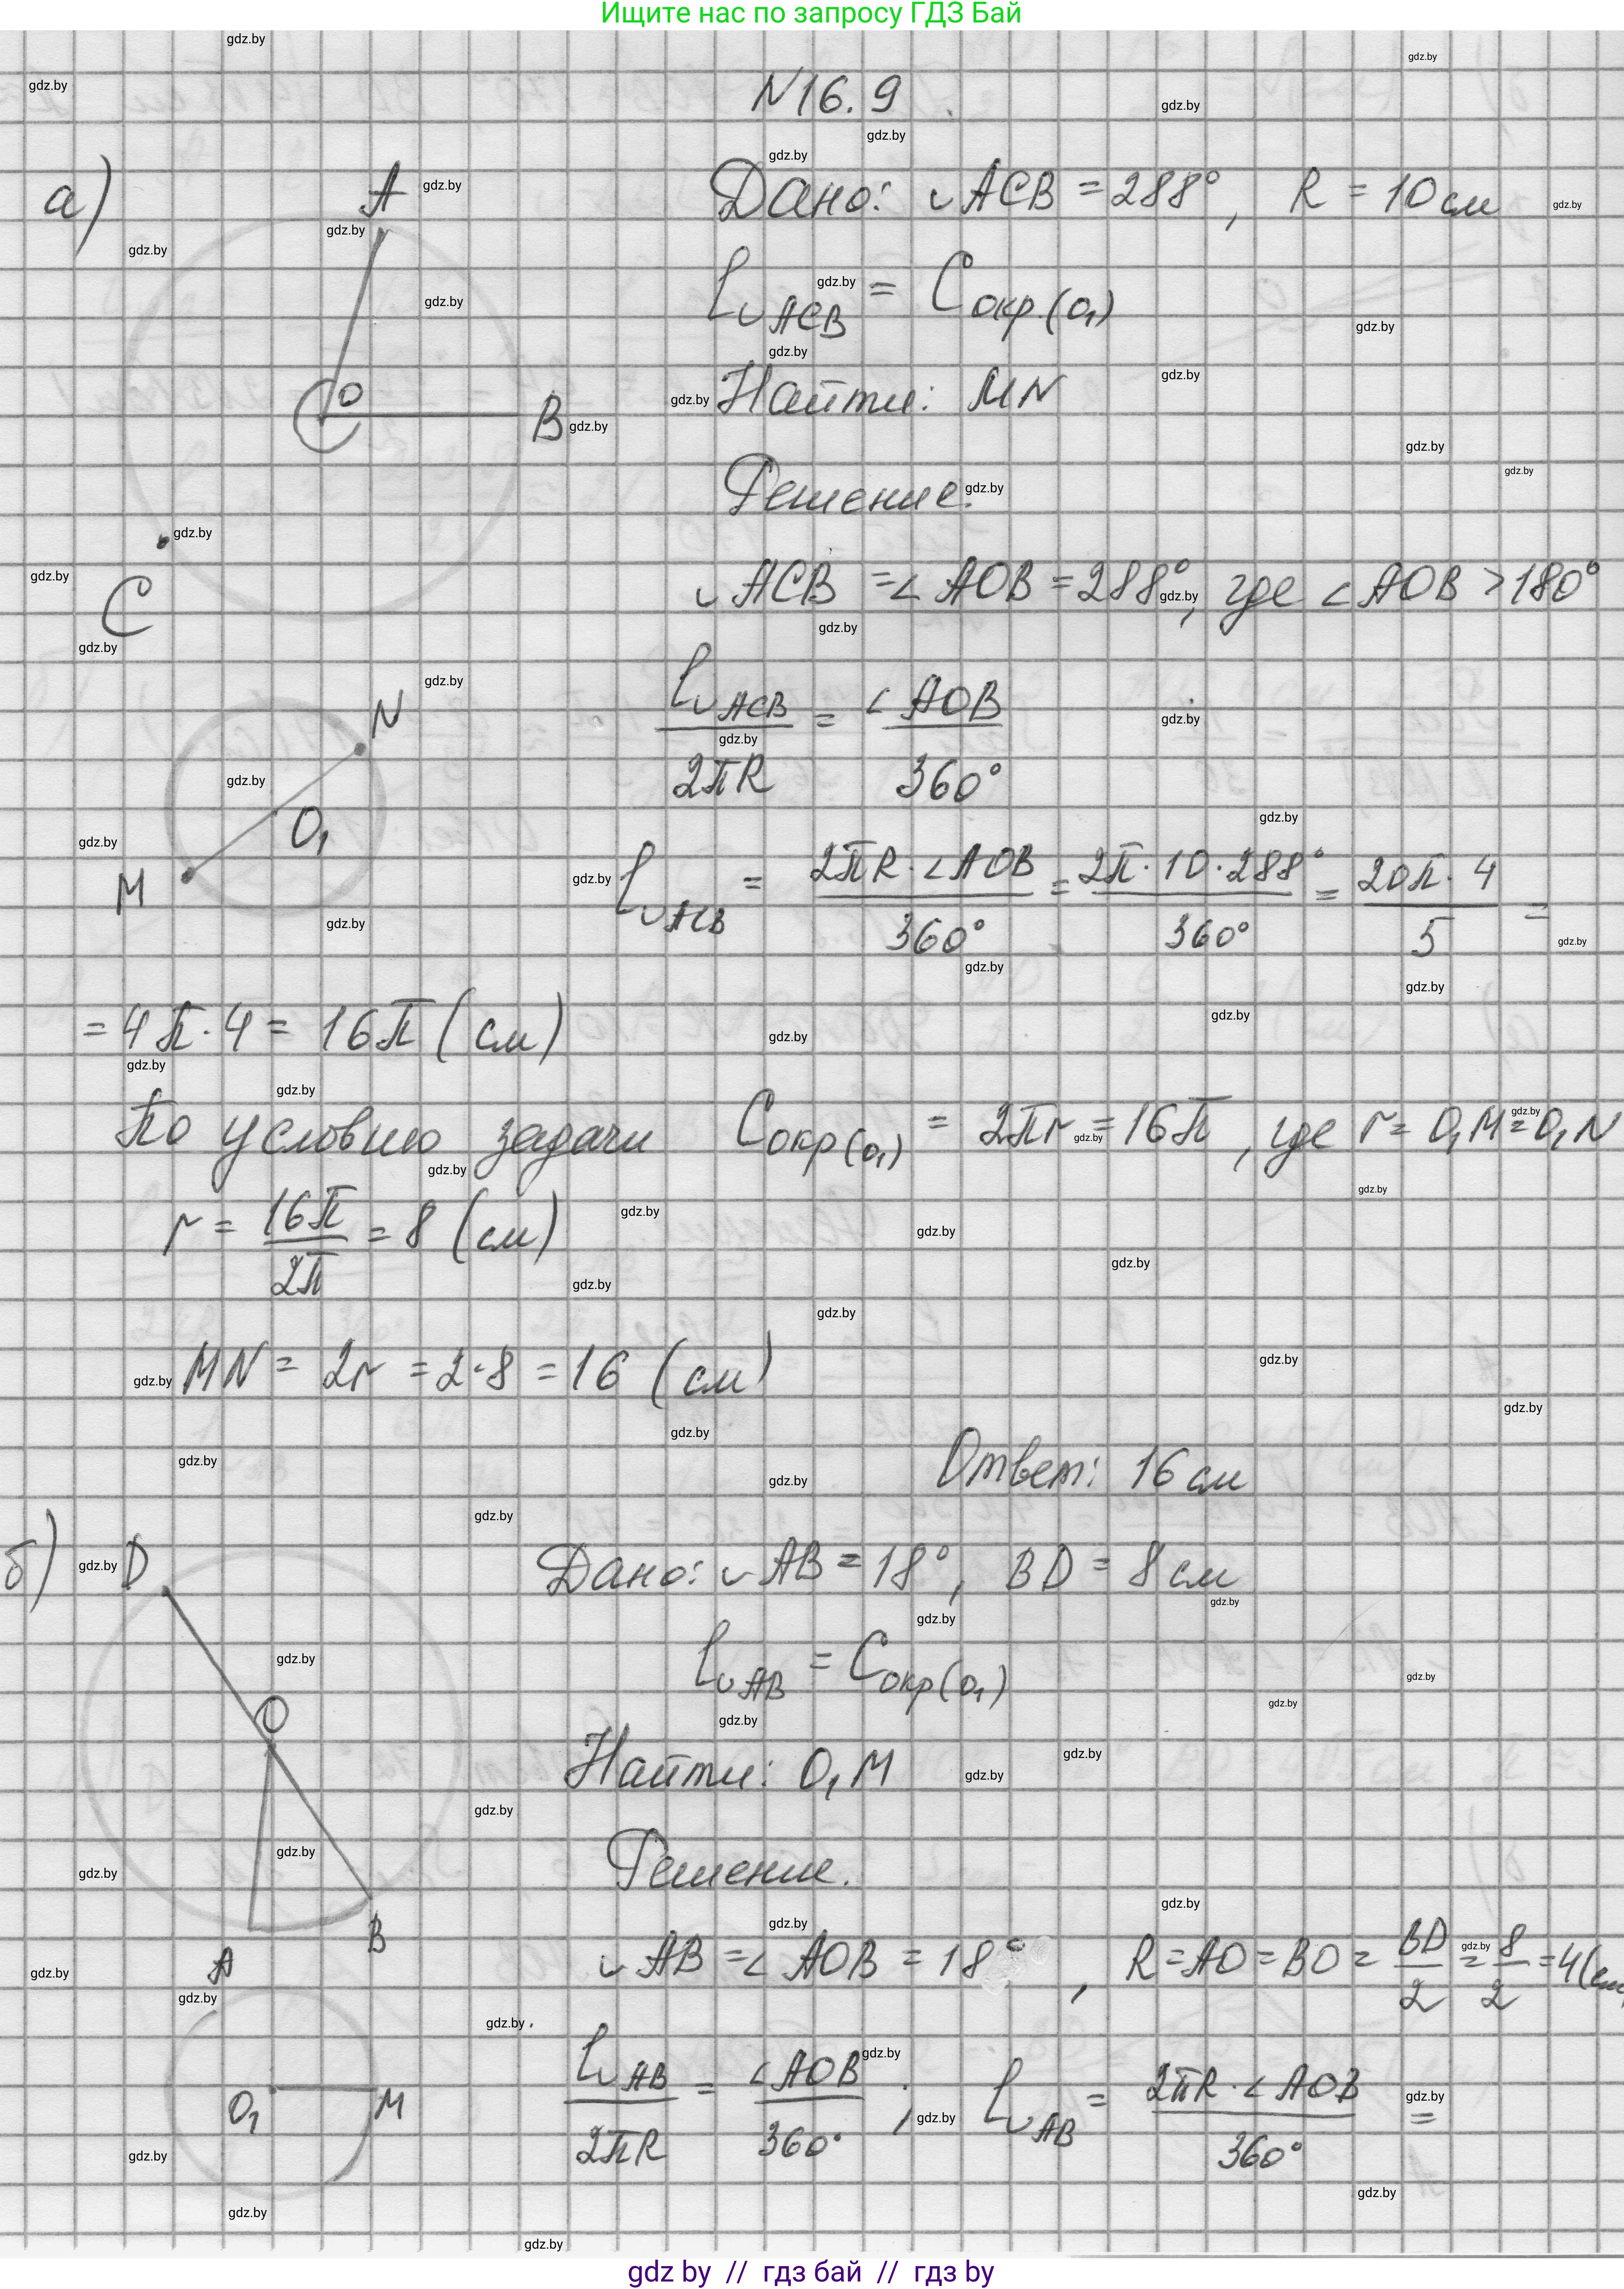 Ищите нас по запросу ГДЗ Бай
N16.9
а)
A
O
B
C
Дано: ◡ACB = 288°, R = 10 см
l◡ACB = Cокр.(O₁)
Найти: MN
Решение.
◡ACB = ∠AOB = 288°, где ∠AOB > 180°
N
O₁
M
l◡ACB / 2πR = ∠AOB / 360°
l◡ACB = 2πR · ∠AOB / 360° = 2π · 10 · 288° / 360° = 20π · 4 / 5 =
= 4π · 4 = 16π (см)
По условию задачи Cокр(O₁) = 2πr = 16π, где r = O₁M = O₁N
r = 16π / 2π = 8 (см)
MN = 2r = 2·8 = 16 (см)
Ответ: 16 см
б)
D
O
A
B
Дано: ◡AB = 18°, BD = 8 см
l◡AB = Cокр(O₁)
Найти: O₁M
Решение.
◡AB = ∠AOB = 18°, R = AO = BO = BD / 2 = 8 / 2 = 4 (см
O₁
M
l◡AB / 2πR = ∠AOB / 360° ; l◡AB = 2πR · ∠AOB / 360° =
gdz.by
gdz by // гдз бай // гдз by